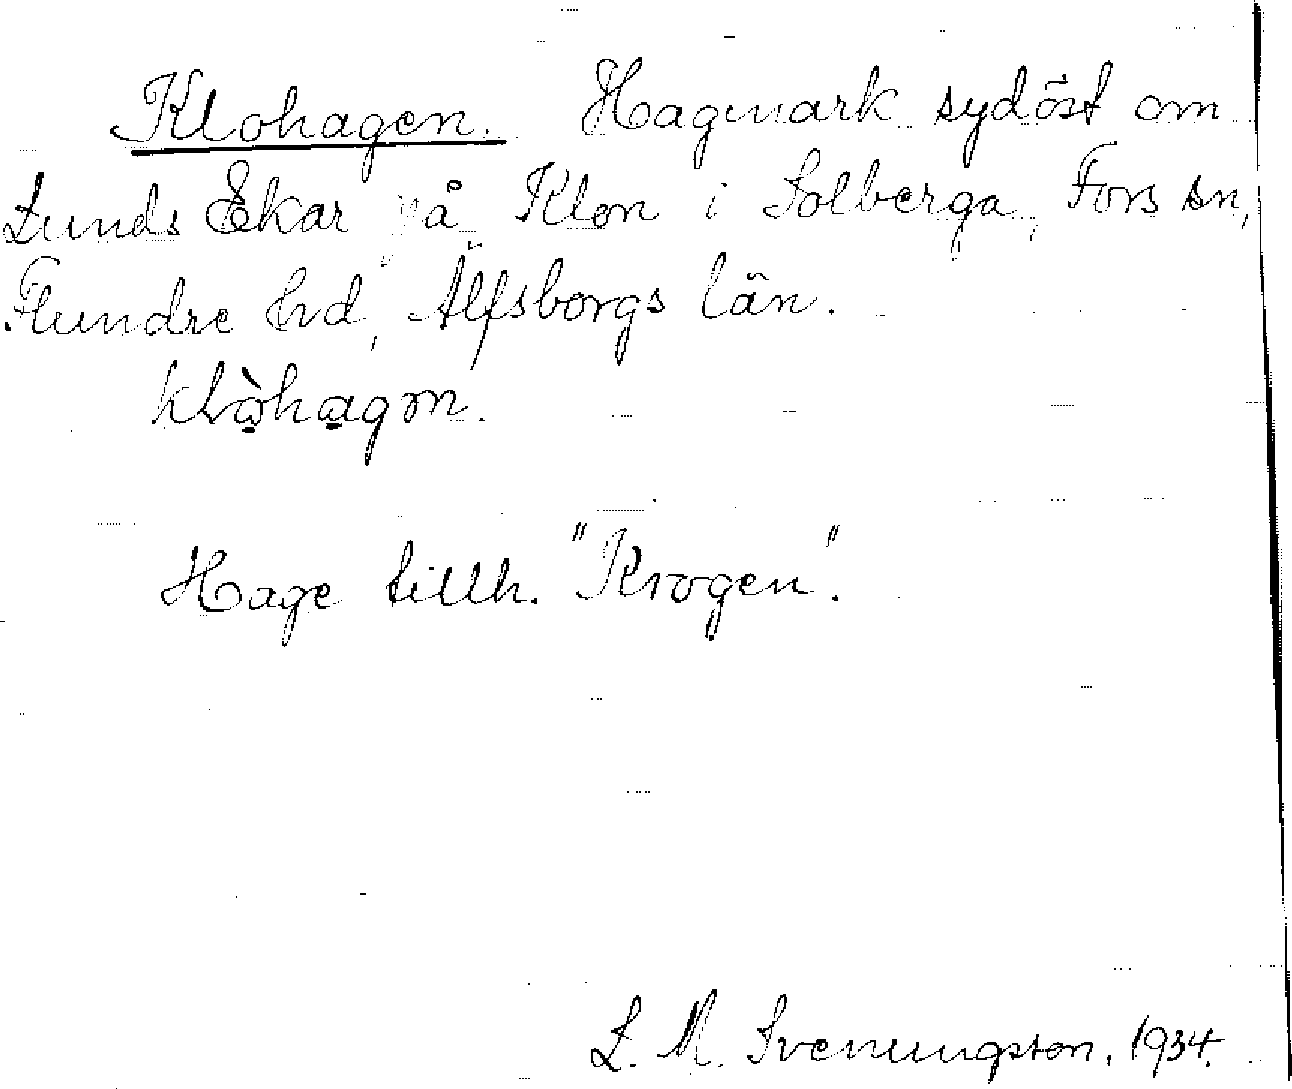 Klohagen. Hagmark sydöst om
Lunds Ekar på Klon i Solberga, Fors sn,
Flundre hrd, Älfsborgs län.
klò̱ha̱gɷn.
Hage tillh. "Krogen".
L. M. Svenungsson, 1934.